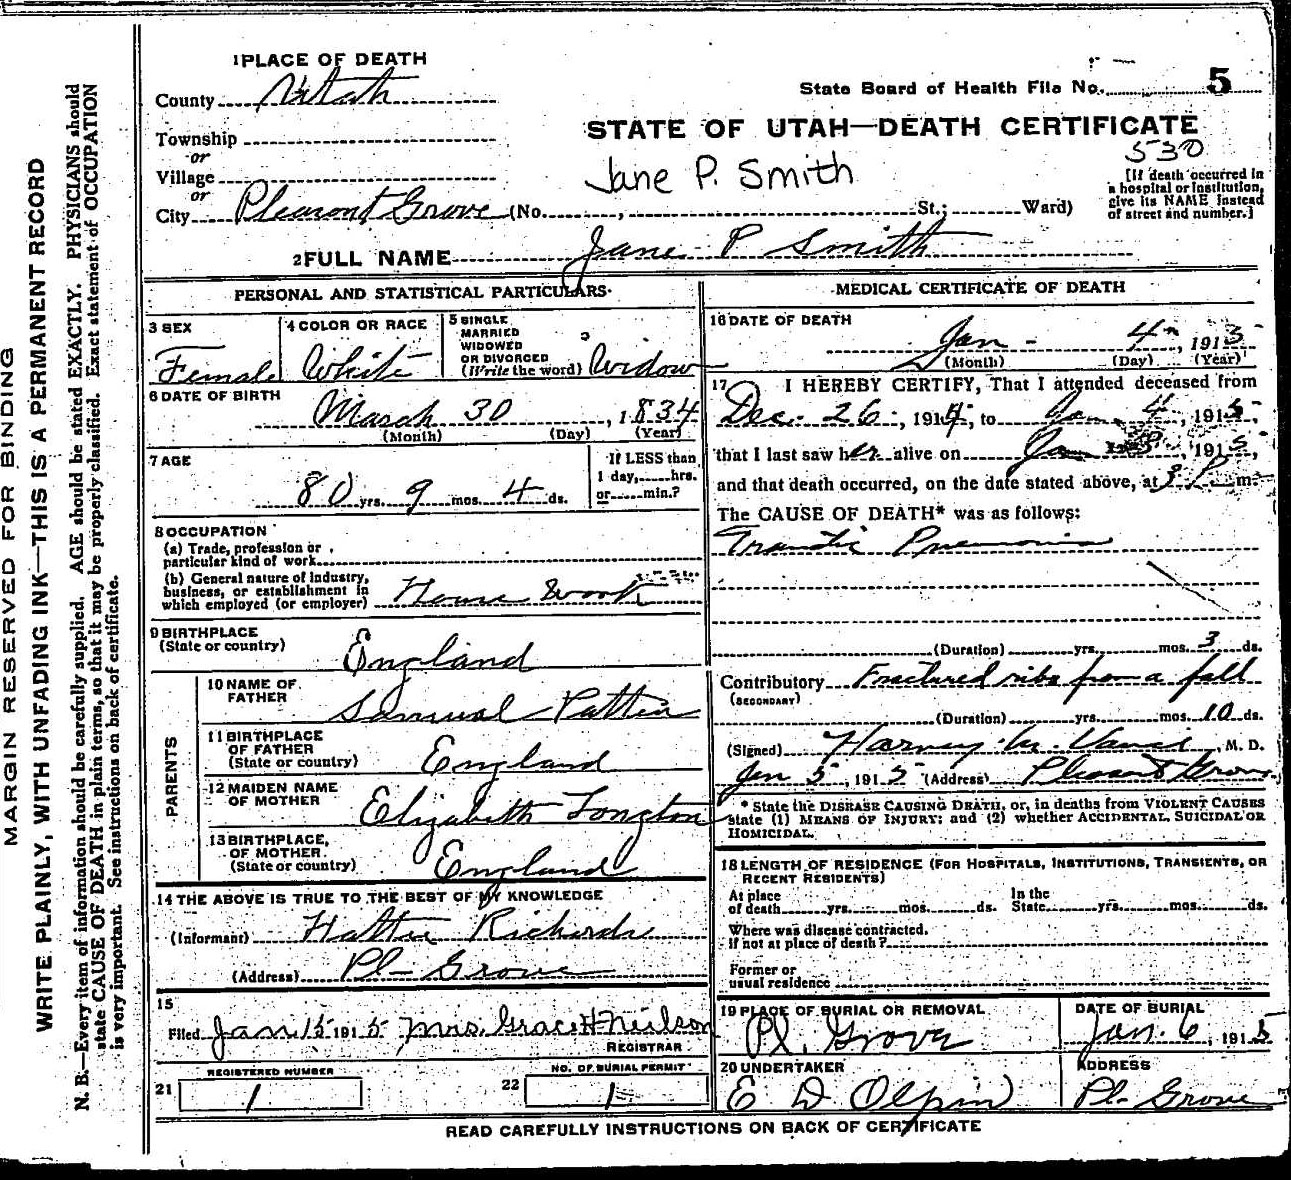 1 PLACE OF DEATH
County Utah
State Board of Health File No. 5
STATE OF UTAH—DEATH CERTIFICATE
530
Township
or
Village
or
City Pleasant Grove (No. , St.; Ward)
Jane P. Smith
[If death occurred in
a hospital or institution,
give its NAME instead
of street and number.]
2 FULL NAME Jane P Smith
PERSONAL AND STATISTICAL PARTICULARS
3 SEX
Female
4 COLOR OR RACE
White
5 SINGLE
MARRIED
WIDOWED
OR DIVORCED
(Write the word) Widow
6 DATE OF BIRTH
March 30, 1834
(Month) (Day) (Year)
7 AGE
80 yrs. 9 mos. 4 ds.
If LESS than
1 day, hrs.
or min.?
8 OCCUPATION
(a) Trade, profession or
particular kind of work
(b) General nature of industry,
business, or establishment in
which employed (or employer) House Work
9 BIRTHPLACE
(State or country) England
PARENTS
10 NAME OF
FATHER Samuel
11 BIRTHPLACE
OF FATHER
(State or country) England
12 MAIDEN NAME
OF MOTHER Elizabeth Longton
13 BIRTHPLACE,
OF MOTHER
(State or country) England
14 THE ABOVE IS TRUE TO THE BEST OF MY KNOWLEDGE
(Informant) Hattie Richards
(Address) Pl- Grove
15
Filed Jan 15 1915 Mrs. Grace H Neilson
REGISTRAR
21 REGISTERED NUMBER
1
22 NO. OF BURIAL PERMIT
1
MEDICAL CERTIFICATE OF DEATH
16 DATE OF DEATH
Jan - 4, 1915
(Month) (Day) (Year)
17 I HEREBY CERTIFY, That I attended deceased from
Dec. 26, 1914, to Jan 4, 1915,
that I last saw her alive on Jan 1915,
and that death occurred, on the date stated above, at 3 P m.
The CAUSE OF DEATH* was as follows:
Pneumonia
(Duration) yrs. mos. 3 ds.
Contributory Fractured ribs from a fall
(SECONDARY)
(Duration) yrs. mos. 10 ds.
(Signed) Harvey, M. D.
Jan 5, 1915 (Address) Pleasant Grove
* State the DISEASE CAUSING DEATH, or, in deaths from VIOLENT CAUSES
state (1) MEANS OF INJURY; and (2) whether ACCIDENTAL, SUICIDAL OR
HOMICIDAL.
18 LENGTH OF RESIDENCE (FOR HOSPITALS, INSTITUTIONS, TRANSIENTS, OR
RECENT RESIDENTS)
At place
of death yrs. mos. ds.
In the
State yrs. mos. ds.
Where was disease contracted,
if not at place of death?
Former or
usual residence
19 PLACE OF BURIAL OR REMOVAL
Pl. Grove
DATE OF BURIAL
Jan. 6, 1915
20 UNDERTAKER
E D Olpin
ADDRESS
Pl- Grove
READ CAREFULLY INSTRUCTIONS ON BACK OF CERTIFICATE
MARGIN RESERVED FOR BINDING
WRITE PLAINLY, WITH UNFADING INK—THIS IS A PERMANENT RECORD
N. B.—Every item of information should be carefully supplied. AGE should be stated EXACTLY. PHYSICIANS should
state CAUSE OF DEATH in plain terms, so that it may be properly classified. Exact statement of OCCUPATION
is very important. See instructions on back of certificate.